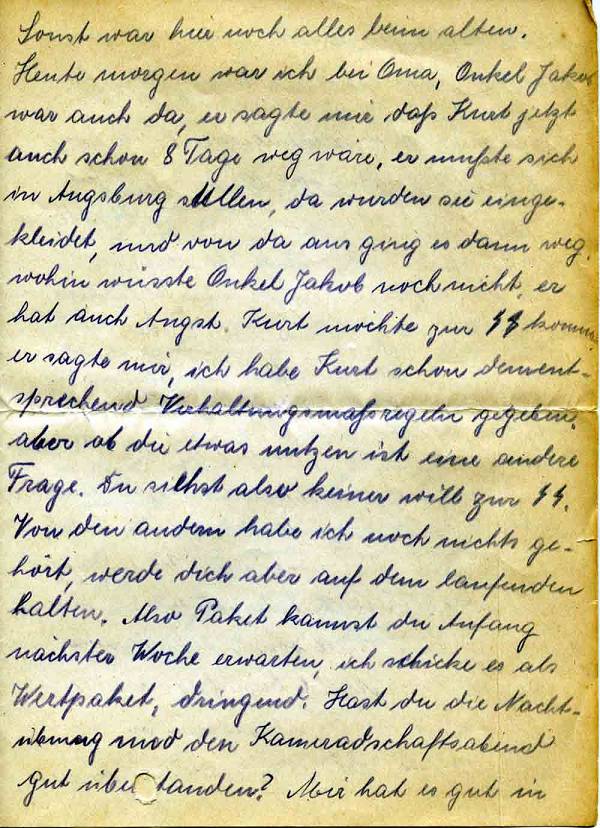 Sonst war hier noch alles beim alten.
Heute morgen war ich bei Oma, Onkel Jakob
war auch da, er sagte mir daß Kurt jetzt
auch schon 8 Tage weg wäre, er mußte sich
in Augsburg stellen, da wurden sie einge-
kleidet, und von da aus ging es dann weg,
wohin wüsste Onkel Jakob noch nicht, er
hat auch Angst. Kurt möchte zur SS komm.
er sagte mir, ich habe Kurt schon dement-
sprechend Verhaltungsmaßregeln gegeben,
aber ob die etwas nutzen ist eine andere
Frage. Du siehst also keiner will zur SS.
Von den andern habe ich noch nichts ge-
hört, werde dich aber auf dem laufenden
halten. Also Paket kannst du Anfang
nächster Woche erwarten, ich schicke es als
Wertpaket, dringend. Hast du die Nacht-
übung und den Kameradschaftsabend
gut überstanden? Mir hat es gut in